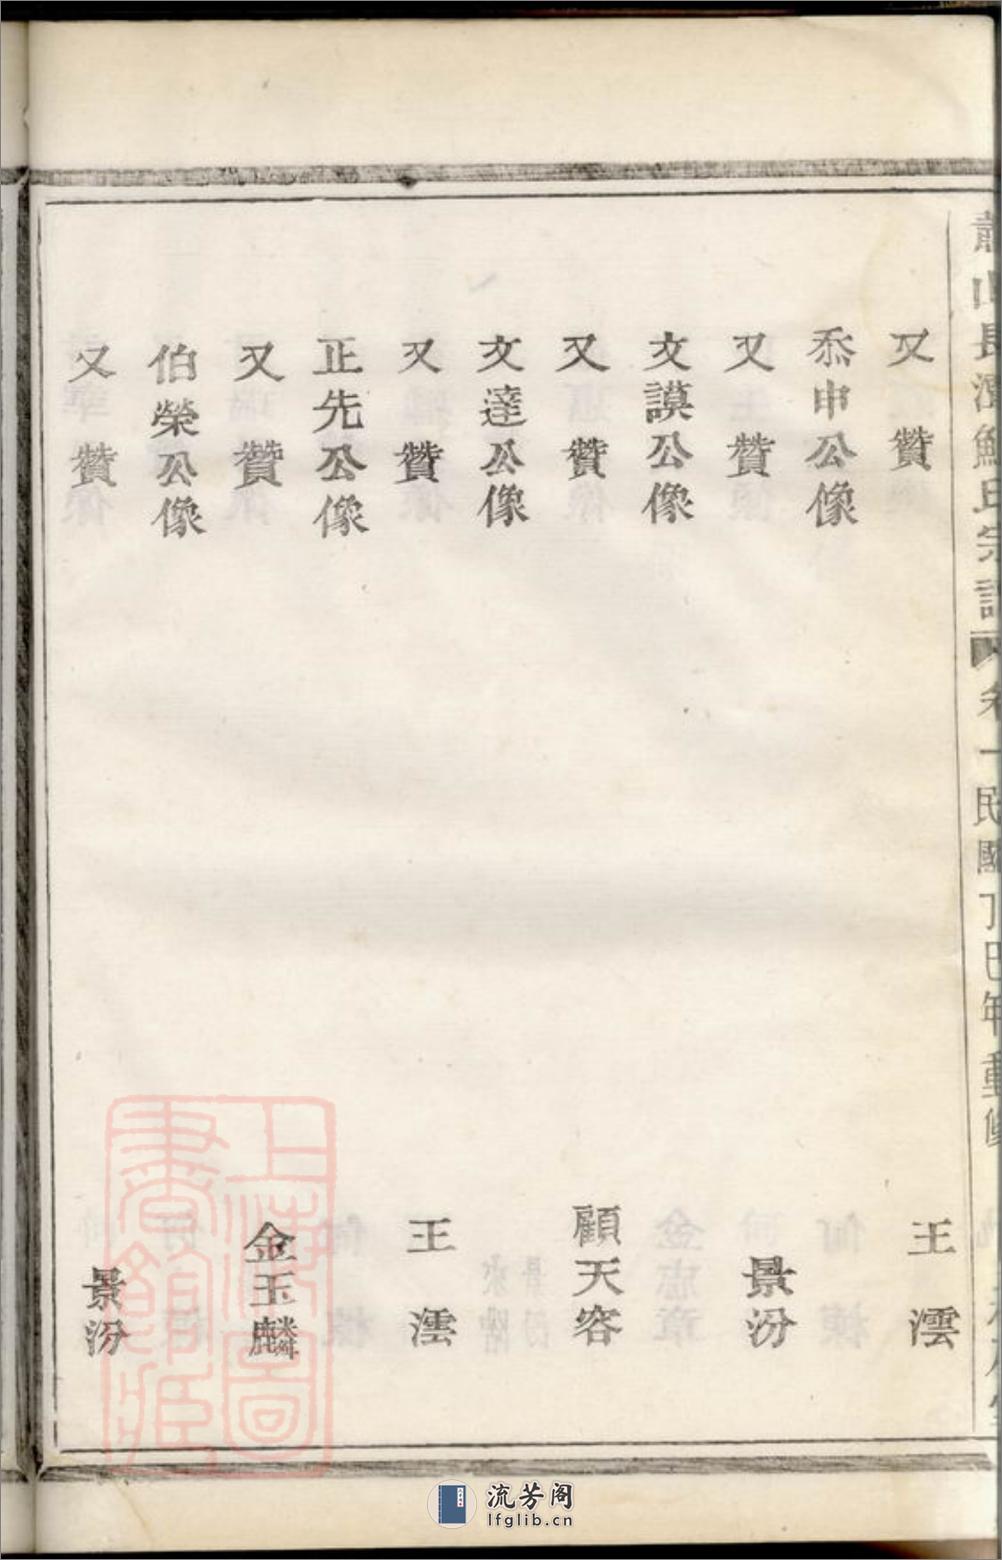 山長潭
氏宗譜
卷一民國丁巳年重修
又贊 王澐
忝申公像
又贊 景汾
文謨公像
又贊 顧天容
文達公像
又贊 王澐
正先公像
又贊 金玉麟
伯榮公像
又贊 景汾
上海圖書館藏
流芳阁
lfglib.cn